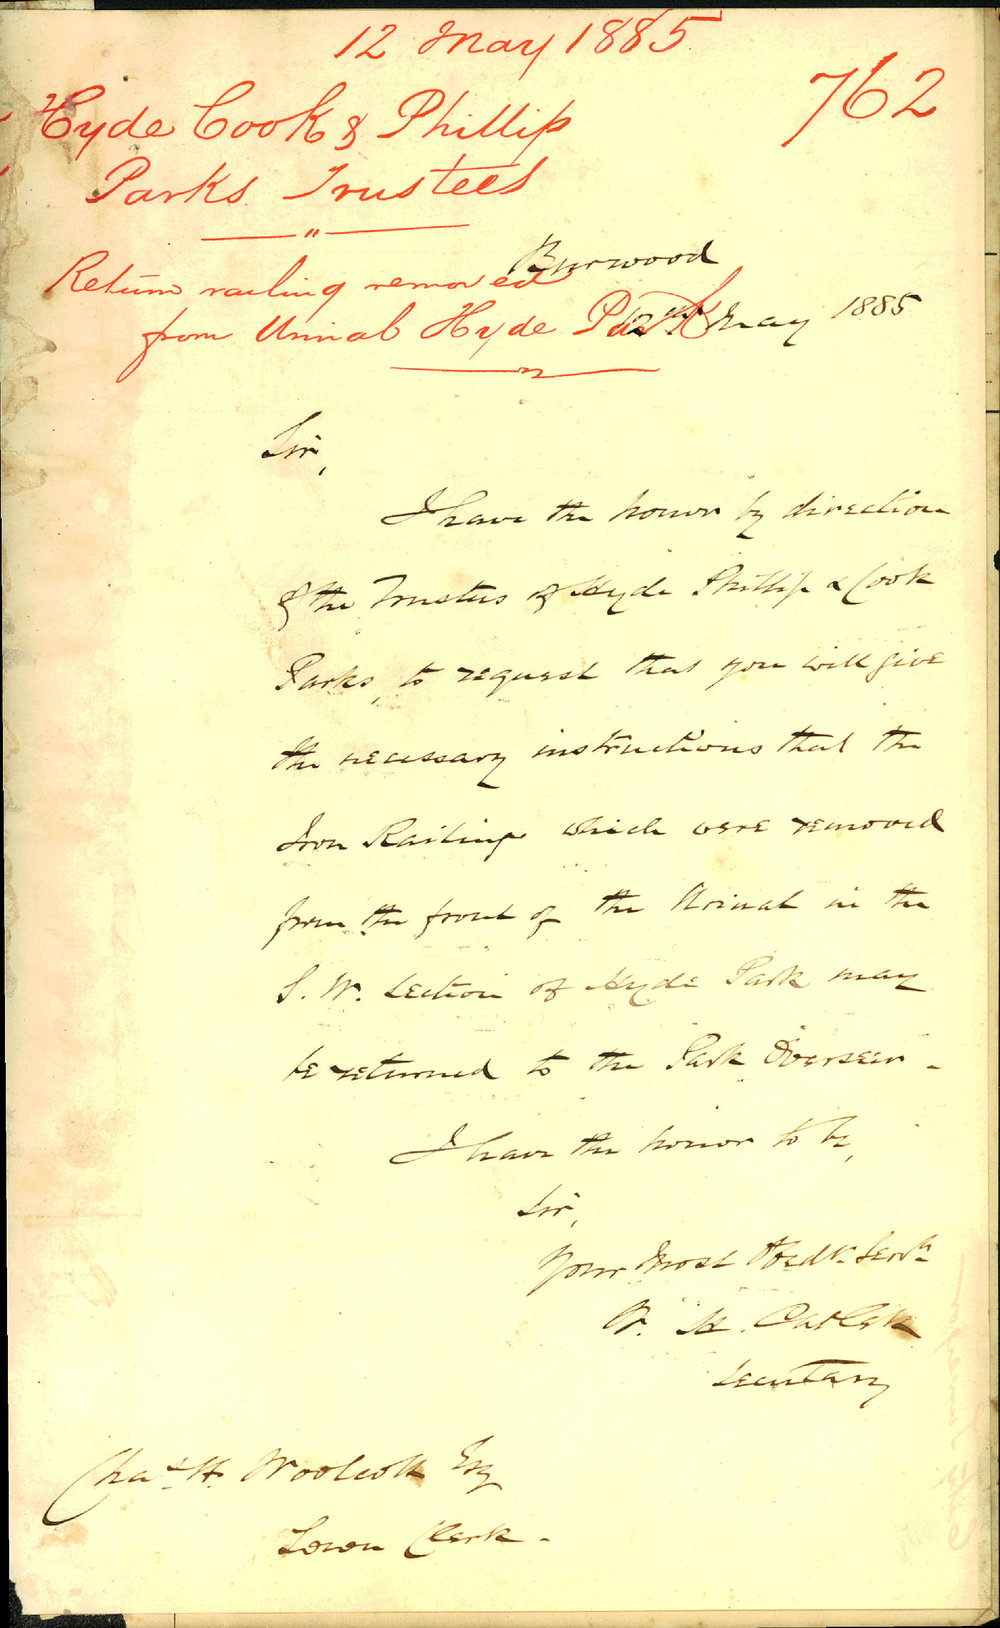 12 May 1885
762
Hyde Cook & Phillip
Parks Trustees
Return railing removed
from Urinal Hyde Park
Burwood
12th May 1885
Sir,
I have the honor by direction
of the Trustees of Hyde Phillip & Cook
Parks, to request that you will give
the necessary instructions that the
Iron Railings which were removed
from the front of the Urinal in the
S. W. Section of Hyde Park may
be returned to the Park Overseer -
I have the honor to be,
Sir,
Your Most Obedt. Servt.
W. H.
Secretary
Chas. H. Woolcott Esq
Town Clerk -